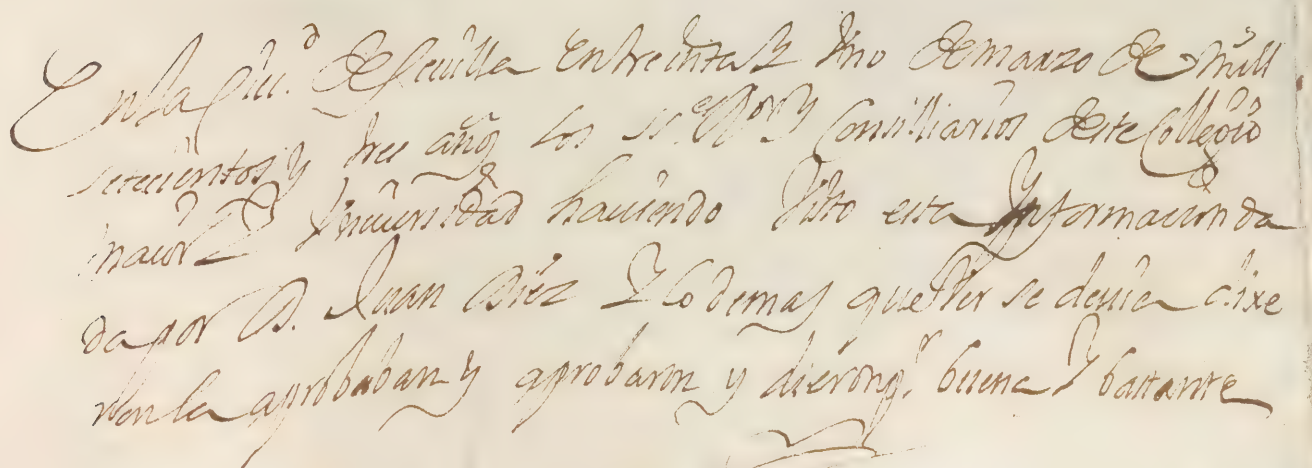 En la Ciu.d de Seuilla en treinta y Uno de marzo de mill
setecientos y tres años los ss.es R.or y Consiliarios deste Collegio
maior y Uniuersidad hauiendo Visto esta Ynformacion da
da por D. Juan Diez y lo demas que Ver se deuia dixe
ron la aprobaban y aprobaron y dieron p.r buena y bastante